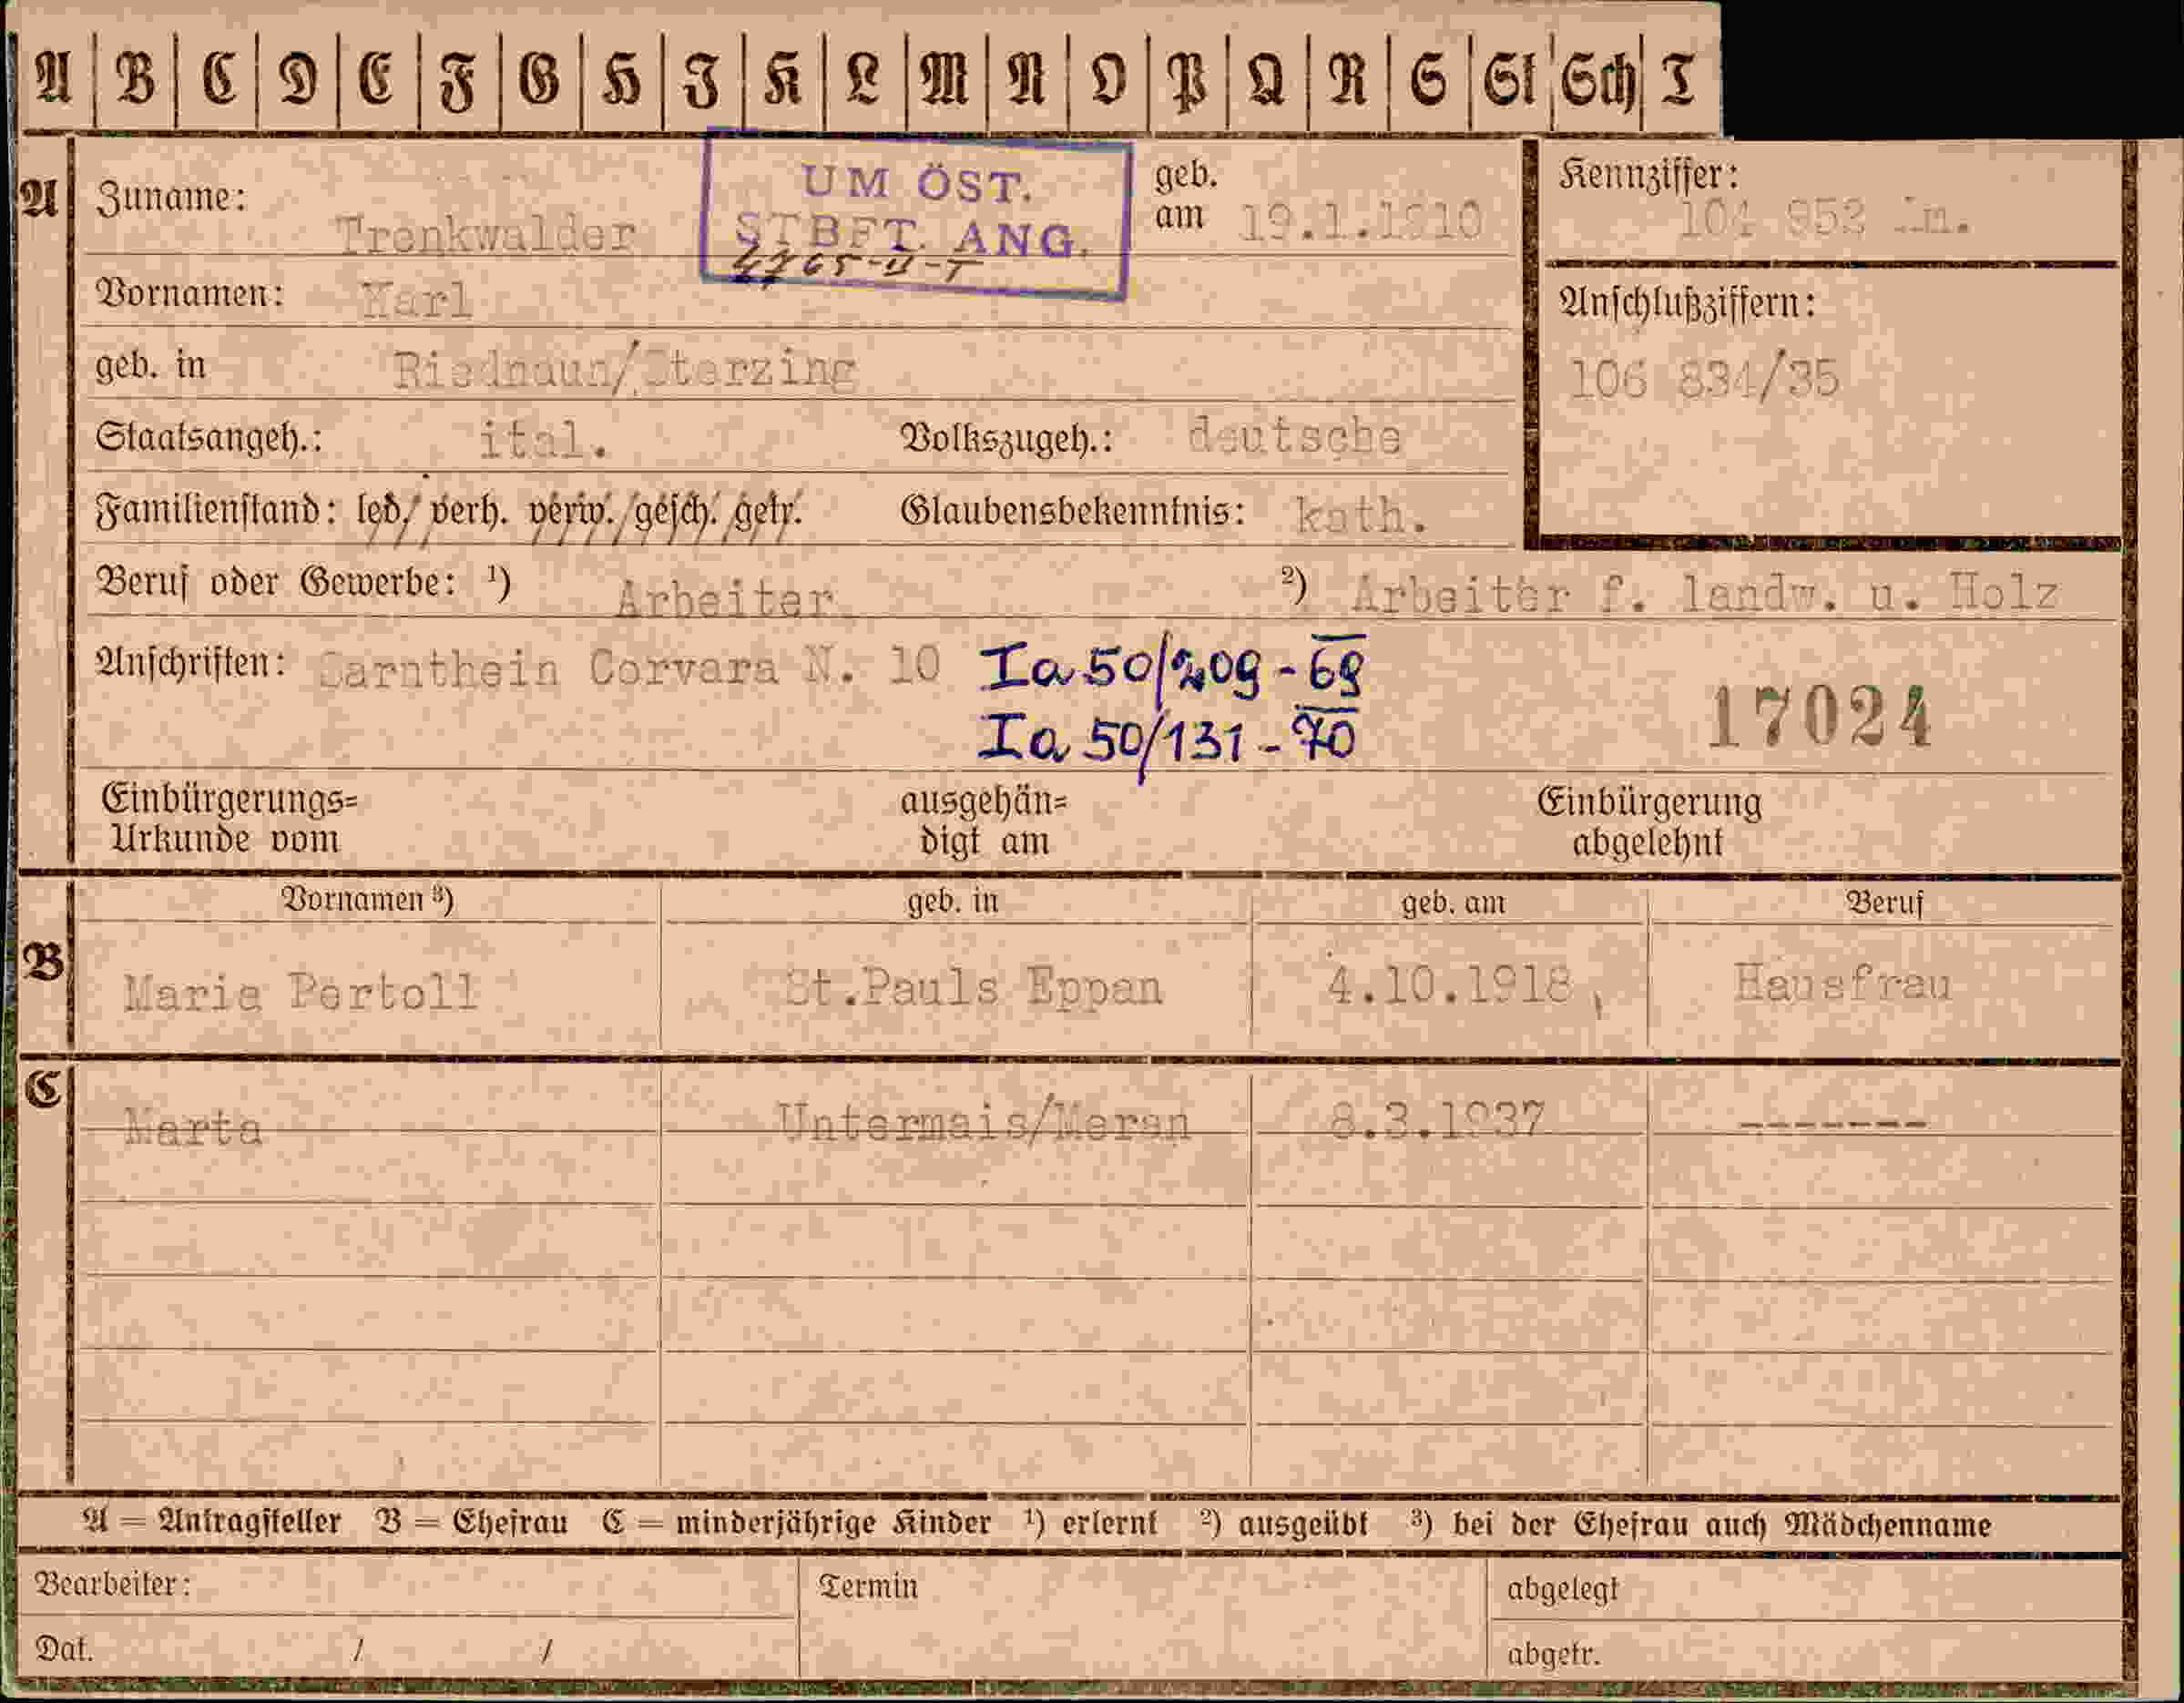 A B C D E F G H I K L M N O P Q R S St Sch T
A Zuname: Trenkwalder geb. am 19.1.1910
UM ÖST.
STBFT. ANG.
Kennziffer:
Vornamen: Karl
Anschlußziffern:
geb. in Riednaun/Sterzing
106 834/35
Staatsangeh.: ital. Volkszugeh.: deutsche
Familienstand: led. verh. verw. gesch. getr. Glaubensbekenntnis: kath.
Beruf oder Gewerbe: ¹) Arbeiter ²) Arbeiter f. landw. u. Holz
Anschriften: Sarnthein Corvara N. 10 Ia 50/209-69
Ia 50/131-70
17024
Einbürgerungs= ausgehän= Einbürgerung
Urkunde vom digt am abgelehnt
Vornamen ³) geb. in geb. am Beruf
B Maria Pertoll St.Pauls Eppan 4.10.1918 Hausfrau
C Marta Untermais/Meran 8.3.1937 -------
A = Antragsteller B = Ehefrau C = minderjährige Kinder ¹) erlernt ²) ausgeübt ³) bei der Ehefrau auch Mädchenname
Bearbeiter: Termin abgelegt
Dat. / / abgetr.